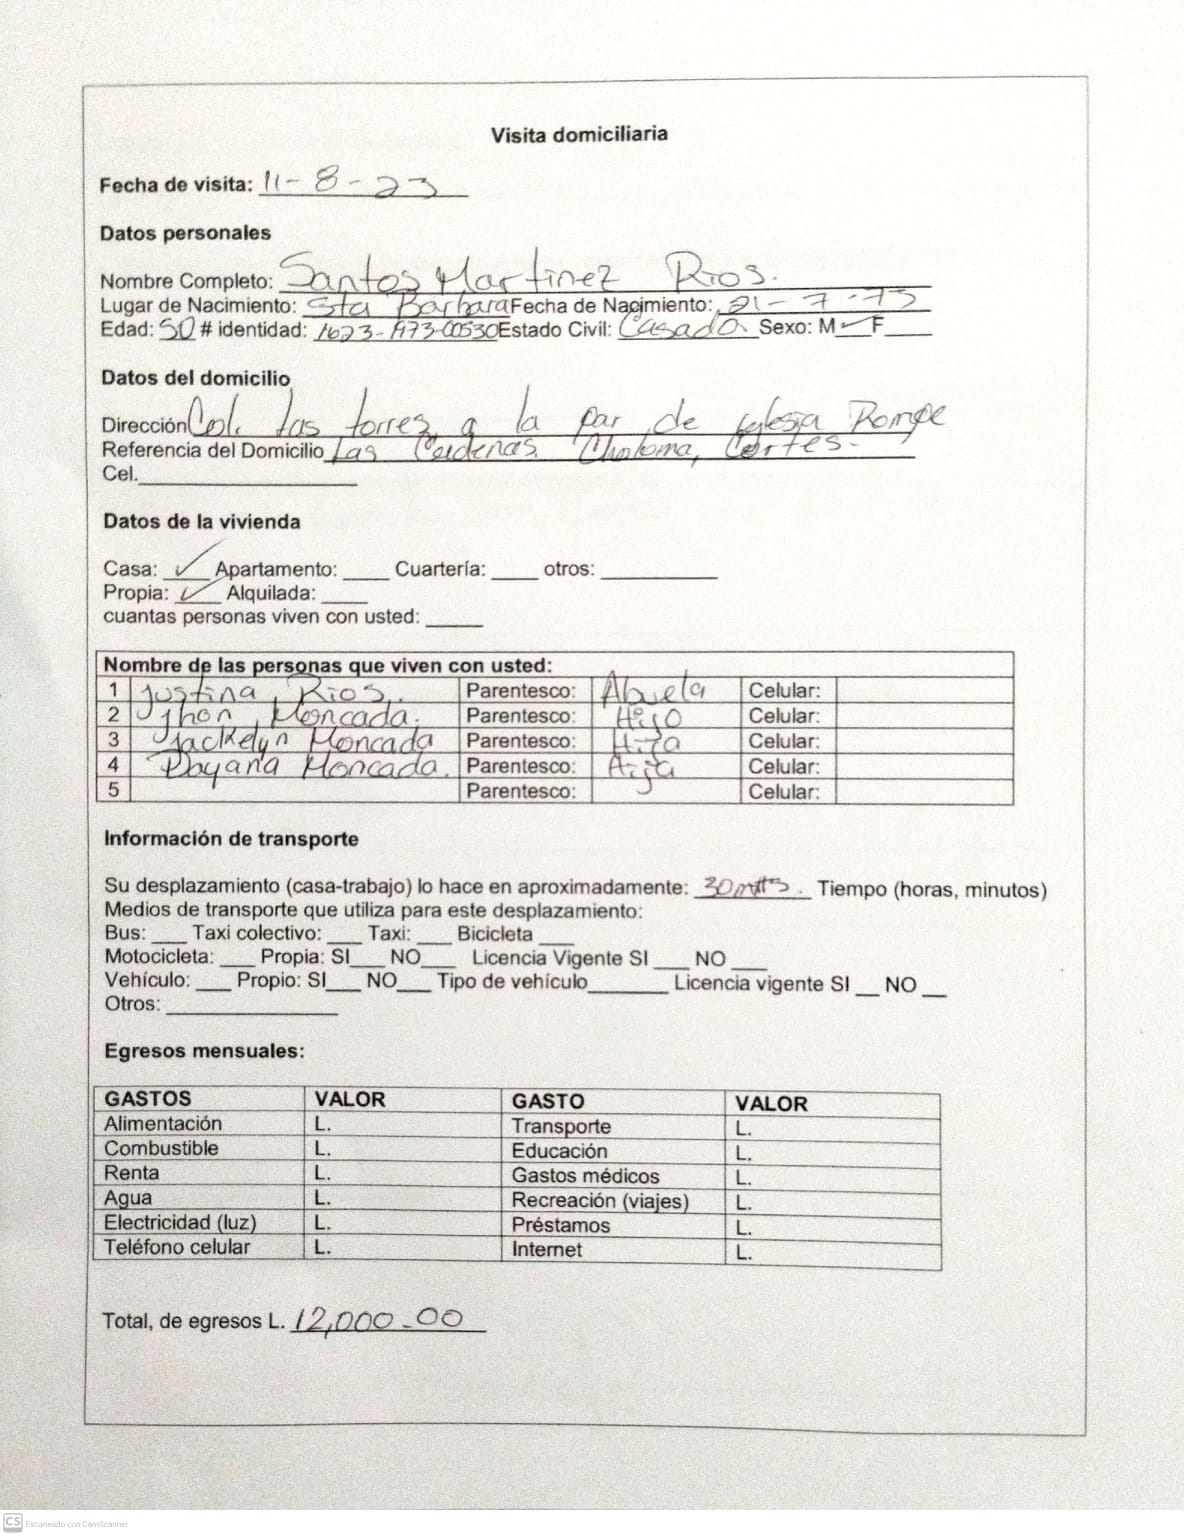 Visita domiciliaria
Fecha de visita: 11-8-23
Datos personales
Nombre Completo: Santos Martinez Rios.
Lugar de Nacimiento: Sta Barbara Fecha de Nacimiento: 21-7-73
Edad: 50 # identidad: 1623-1973-00530 Estado Civil: Casado. Sexo: M ✓ F____
Datos del domicilio
Dirección Col. las torrez a la par de iglesia Rompe
Referencia del Domicilio Las Cadenas. Choloma, Cortes.
Cel.____
Datos de la vivienda
Casa: ✓ Apartamento: ____ Cuartería: ____ otros: ____
Propia: ✓ Alquilada: ____
cuantas personas viven con usted: ____
Nombre de las personas que viven con usted:
1 Justina Rios. Parentesco: Abuela Celular:
2 Jhon Moncada. Parentesco: Hijo Celular:
3 Jackelyn Moncada Parentesco: Hija Celular:
4 Dayana Moncada. Parentesco: Hija Celular:
5 Parentesco: Celular:
Información de transporte
Su desplazamiento (casa-trabajo) lo hace en aproximadamente: 30 Tiempo (horas, minutos)
Medios de transporte que utiliza para este desplazamiento:
Bus: ___ Taxi colectivo: ___ Taxi: ___ Bicicleta ___
Motocicleta: ___ Propia: SI___ NO___ Licencia Vigente SI ___ NO ___
Vehículo: ___ Propio: SI___ NO___ Tipo de vehículo_______ Licencia vigente SI __ NO __
Otros: ____
Egresos mensuales:
GASTOS VALOR GASTO VALOR
Alimentación L. Transporte L.
Combustible L. Educación L.
Renta L. Gastos médicos L.
Agua L. Recreación (viajes) L.
Electricidad (luz) L. Préstamos L.
Teléfono celular L. Internet L.
Total, de egresos L. 12,000.00
CS Escaneado con CamScanner